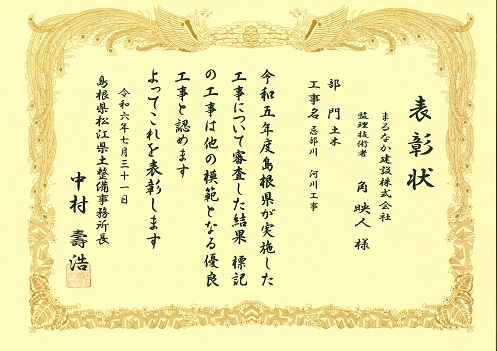 表彰状
まるなか建設株式会社
監理技術者 角 映人 様
部門 土木
工事名 忌部川 河川工事
令和五年度島根県が実施した
工事について審査した結果 標記
の工事は他の模範となる優良
工事と認めます
よってこれを表彰します
令和六年七月三十一日
島根県松江県土整備事務所長
中村 壽浩